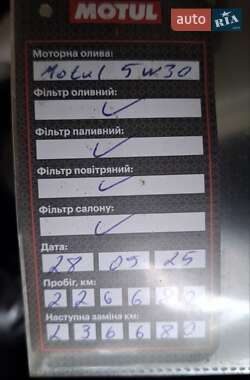 AUTO RIA
MOTUL
Моторна олива:
Motul 5w30
Фільтр оливний:
Фільтр паливний:
Фільтр повітряний:
Фільтр салону:
Дата:
28 09 25
Пробіг, км:
226680
Наступна заміна км:
236680